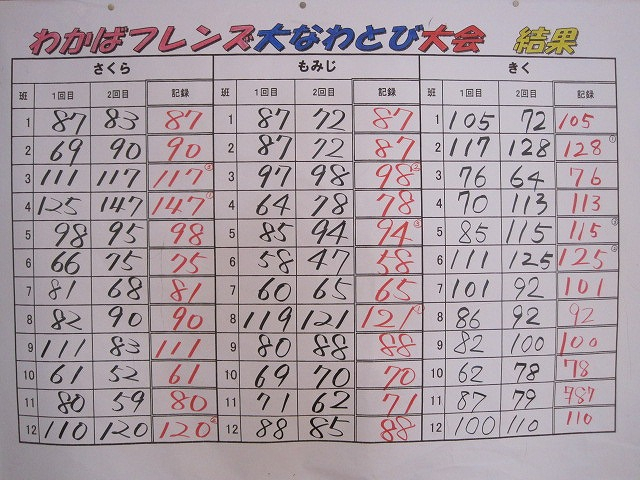 わかばフレンズ大なわとび大会 結果
さくら もみじ きく
班 1回目 2回目 記録 班 1回目 2回目 記録 班 1回目 2回目 記録
1 87 83 87 1 87 72 87 1 105 72 105
2 69 90 90 2 87 72 87 2 117 128 128①
3 111 117 117③ 3 97 98 98② 3 76 64 76
4 125 147 147① 4 64 78 78 4 70 113 113
5 98 95 98 5 85 94 94③ 5 85 115 115③
6 66 75 75 6 58 47 58 6 111 125 125②
7 81 68 81 7 60 65 65 7 101 92 101
8 82 90 90 8 119 121 121① 8 86 92 92
9 111 83 111 9 80 88 88 9 82 100 100
10 61 52 61 10 69 70 70 10 62 78 78
11 80 59 80 11 71 62 71 11 87 79
12 110 120 120② 12 88 85 88 12 100 110 110